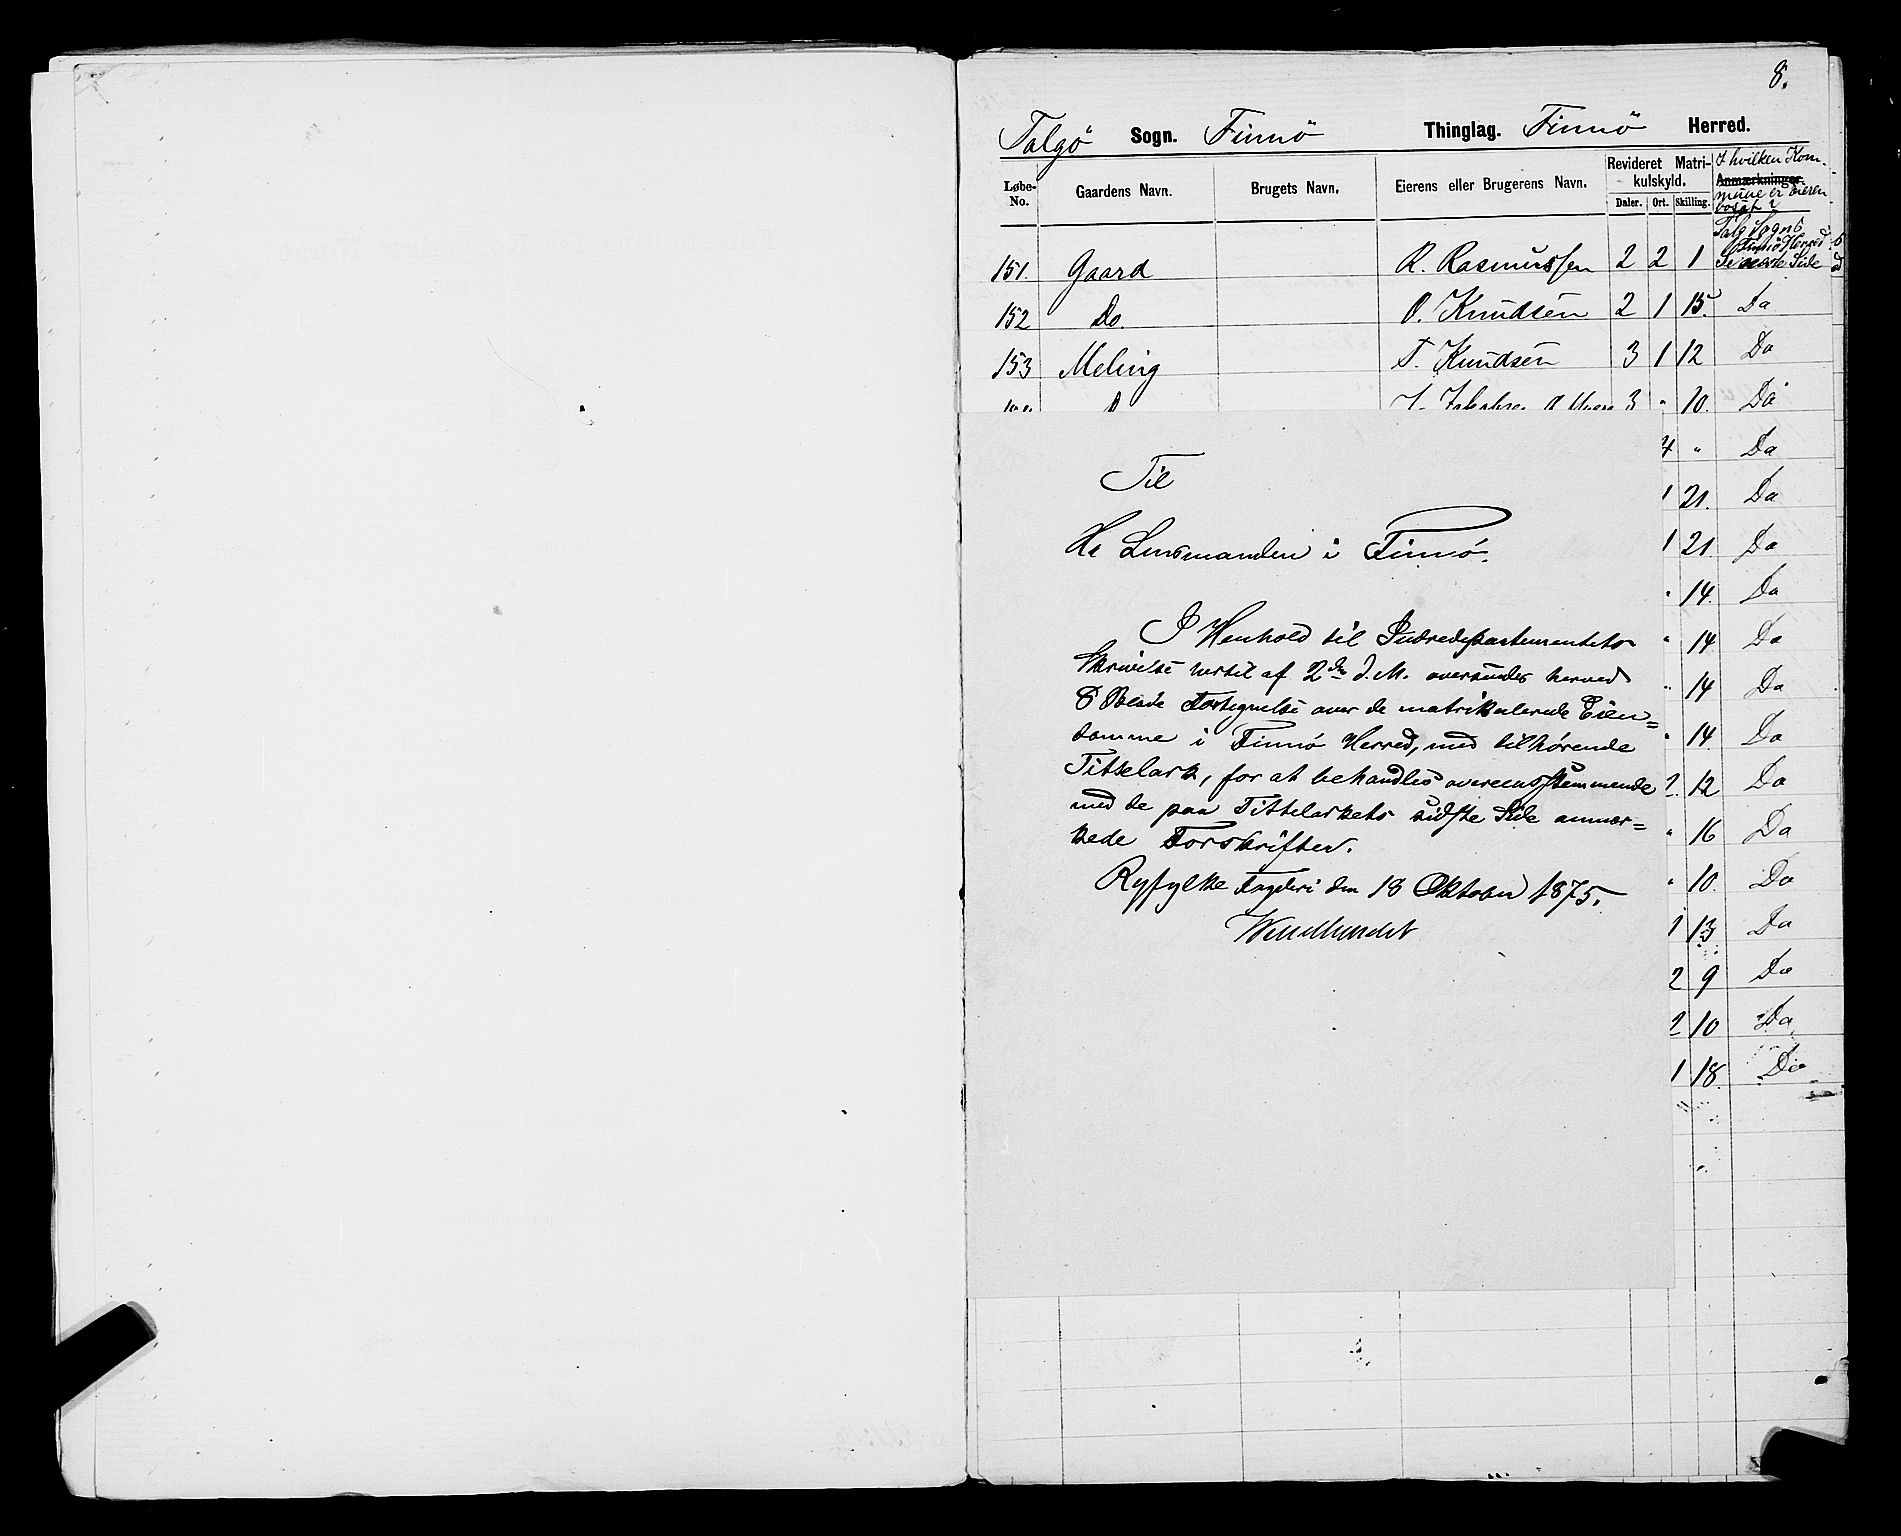 8.
Talgö Sogn. Finnö Thinglag. Finnö Herred.
Løbe-No. Gaardens Navn. Brugets Navn. Eierens eller Brugerens Navn. Revideret Matrikulskyld. Daler. Ort. Skilling. Anmærkninger. I hvilken Kommune er Eieren bosat?
151. Gaard R. Rasmussen 2 2 1 Talg Sogn Finnö Herred Se næste Side
152 Do. O. Knudsen 2 1 15. Do
153 Meling T. Knudsen 3 1 12 Do
3 " 10. Do
4 " Do
1 21. Do
1 21 Do
" 14. Do
" 14 Do
" 14 Do
" 14 Do
2. 12 Do
" 16 Do
" 10. Do
1 13 Do
2 9 Do
2 10 Do
1 18. Do
Til
Hr Lensmanden i Finnö.
I Henhold til Indredepartementets
Skrivelse hertil af 2den d. M. oversendes herved
8 Blade Fortegnelse over de matrikulerede Eien=
domme i Finnö Herred, med tilhørende
Tittelark, for at behandles overensstemmende
med de paa Tittelarkets sidste Side anmær=
kede Forskrifter.
Ryfylke Fogderi den 18 Oktober 1875.